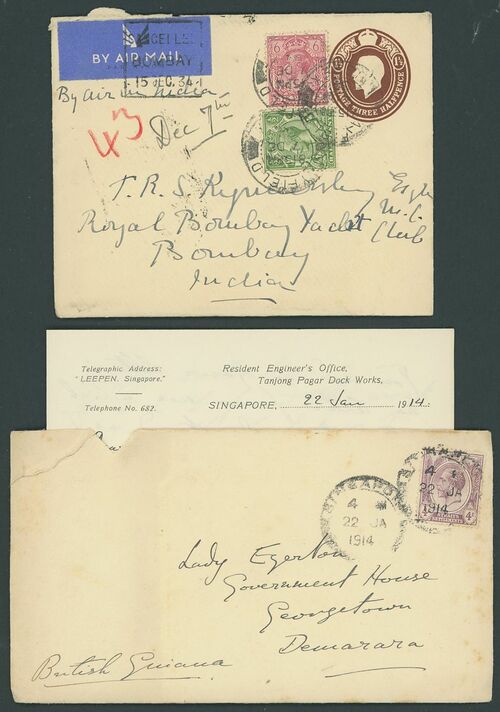 BY AIR MAIL
BOMBAY
15 DEC. 34
6 6
1½ 1½
POSTAGE THREE HALFPENCE
By Air in India
43
Dec 7th
FIELD
T. R. S. Esqre
M.C.
Royal Bombay Yacht Club
Bombay
India
Telegraphic Address:
"LEEPEN, Singapore."
Telephone No. 682.
Resident Engineer's Office,
Tanjong Pagar Dock Works,
SINGAPORE, 22 Jan 1914.
SINGAPORE
4
22 JA
1914
4
22 JA
1914
Lady Egerton
Government House
Georgetown
Demarara
British Guiana